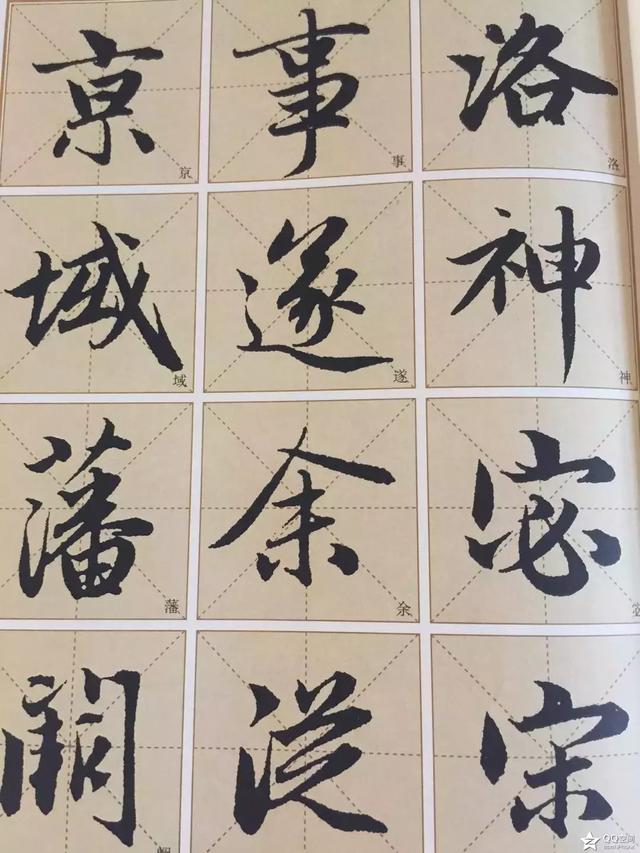 洛神宓宋
事遂余從
京域藩
洛
神
宓
事
遂
余
京
域
藩
QQ空间